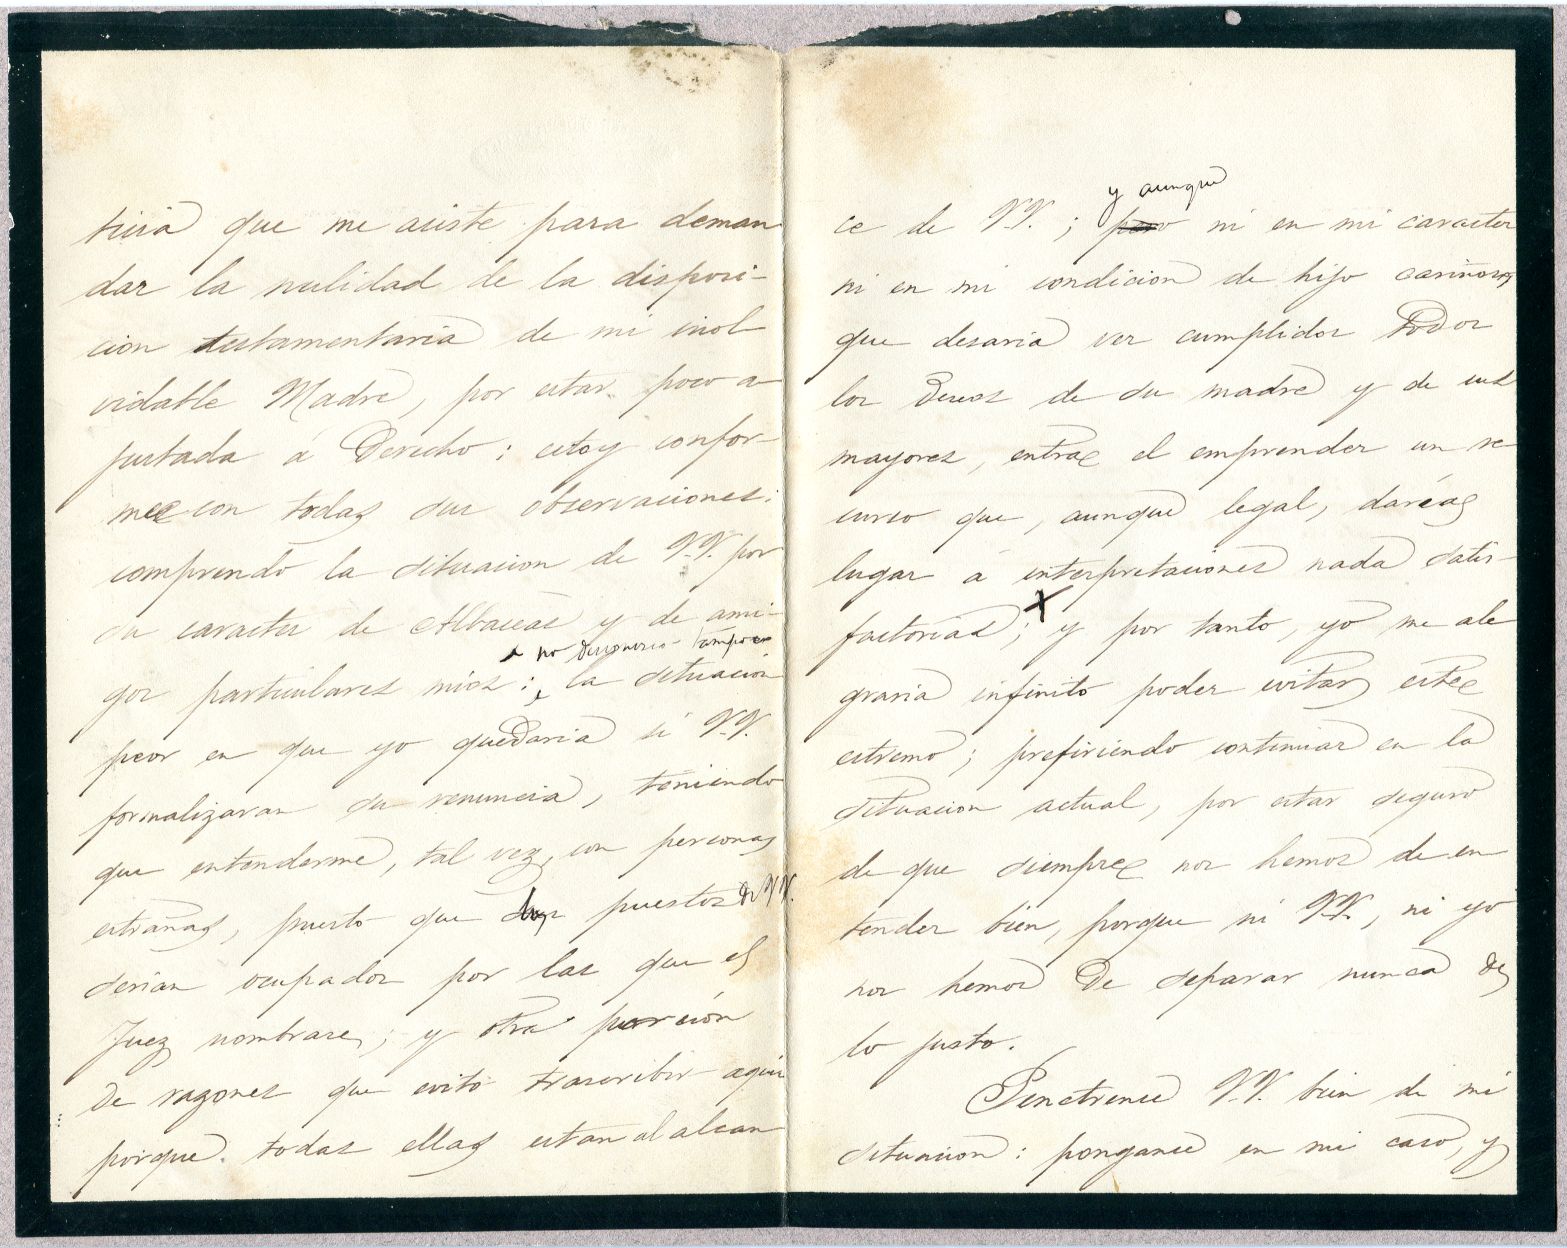 ticia que me asiste para deman
dar la nulidad de la disposi-
cion testamentaria de mi inol
vidable Madre, por estar poco a
justada á Derecho; estoy confor-
me con todas sus observaciones:
comprendo la situacion de V.V. por
su caracter de Albaceas y de ami-
no desconozco tampoco
gos particulares mios: la situacion
peor en que yo quedaria si V.V.
formalizaran su renuncia, teniendo
que entenderme, tal vez, con personas
estrañas, puesto que los puestos de V.V.
serian ocupados por las que el
Juez nombrase; y otra porción
de razones que evito trascribir aquí
porque todas ellas estan al alcan
y aunque
ce de V.V.; pero ni en mi caracter
ni en mi condicion de hijo cariñoso
que desaria ver cumplidos todos
los deseos de su madre y de sus
mayores, entrae el emprender un re-
curso que, aunque legal, daréa
lugar á interpretaciones nada satis-
factorias; y por tanto, yo me ale
graria infinito poder evitar este
estremo; prefiriendo continuar en la
situacion actual, por estar seguro
de que siempre nos hemos de en
tender bien, porque ni V.V., ni yo
nos hemos de separar nunca de
lo justo.
Penetrense V.V. bien de mi
situacion: ponganse en mi caso, y